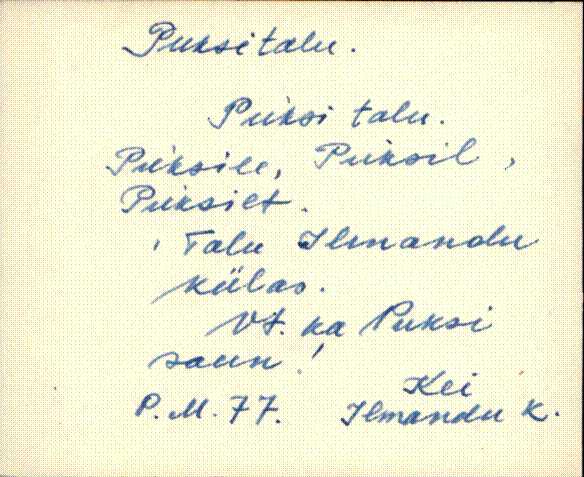 Puksi talu.
Puksi talu.
Puksile, Puksil,
Puksilt.
Talu Ilmandu
külas.
Vt. ka Puksi
saun!
Kei
P.M. 77. Ilmandu k.